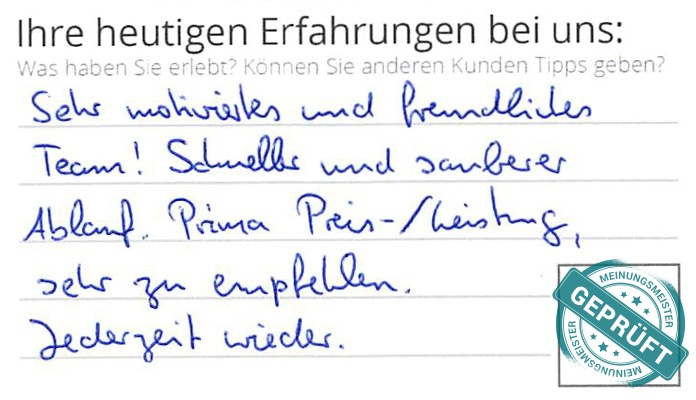 Ihre heutigen Erfahrungen bei uns:
Was haben Sie erlebt? Können Sie anderen Kunden Tipps geben?
Sehr motiviertes und freundliches
Team! Schneller und sauberer
Ablauf. Prima Preis-/Leistung,
sehr zu empfehlen.
Jederzeit wieder.
MEINUNGSMEISTER
GEPRÜFT
MEINUNGSMEISTER